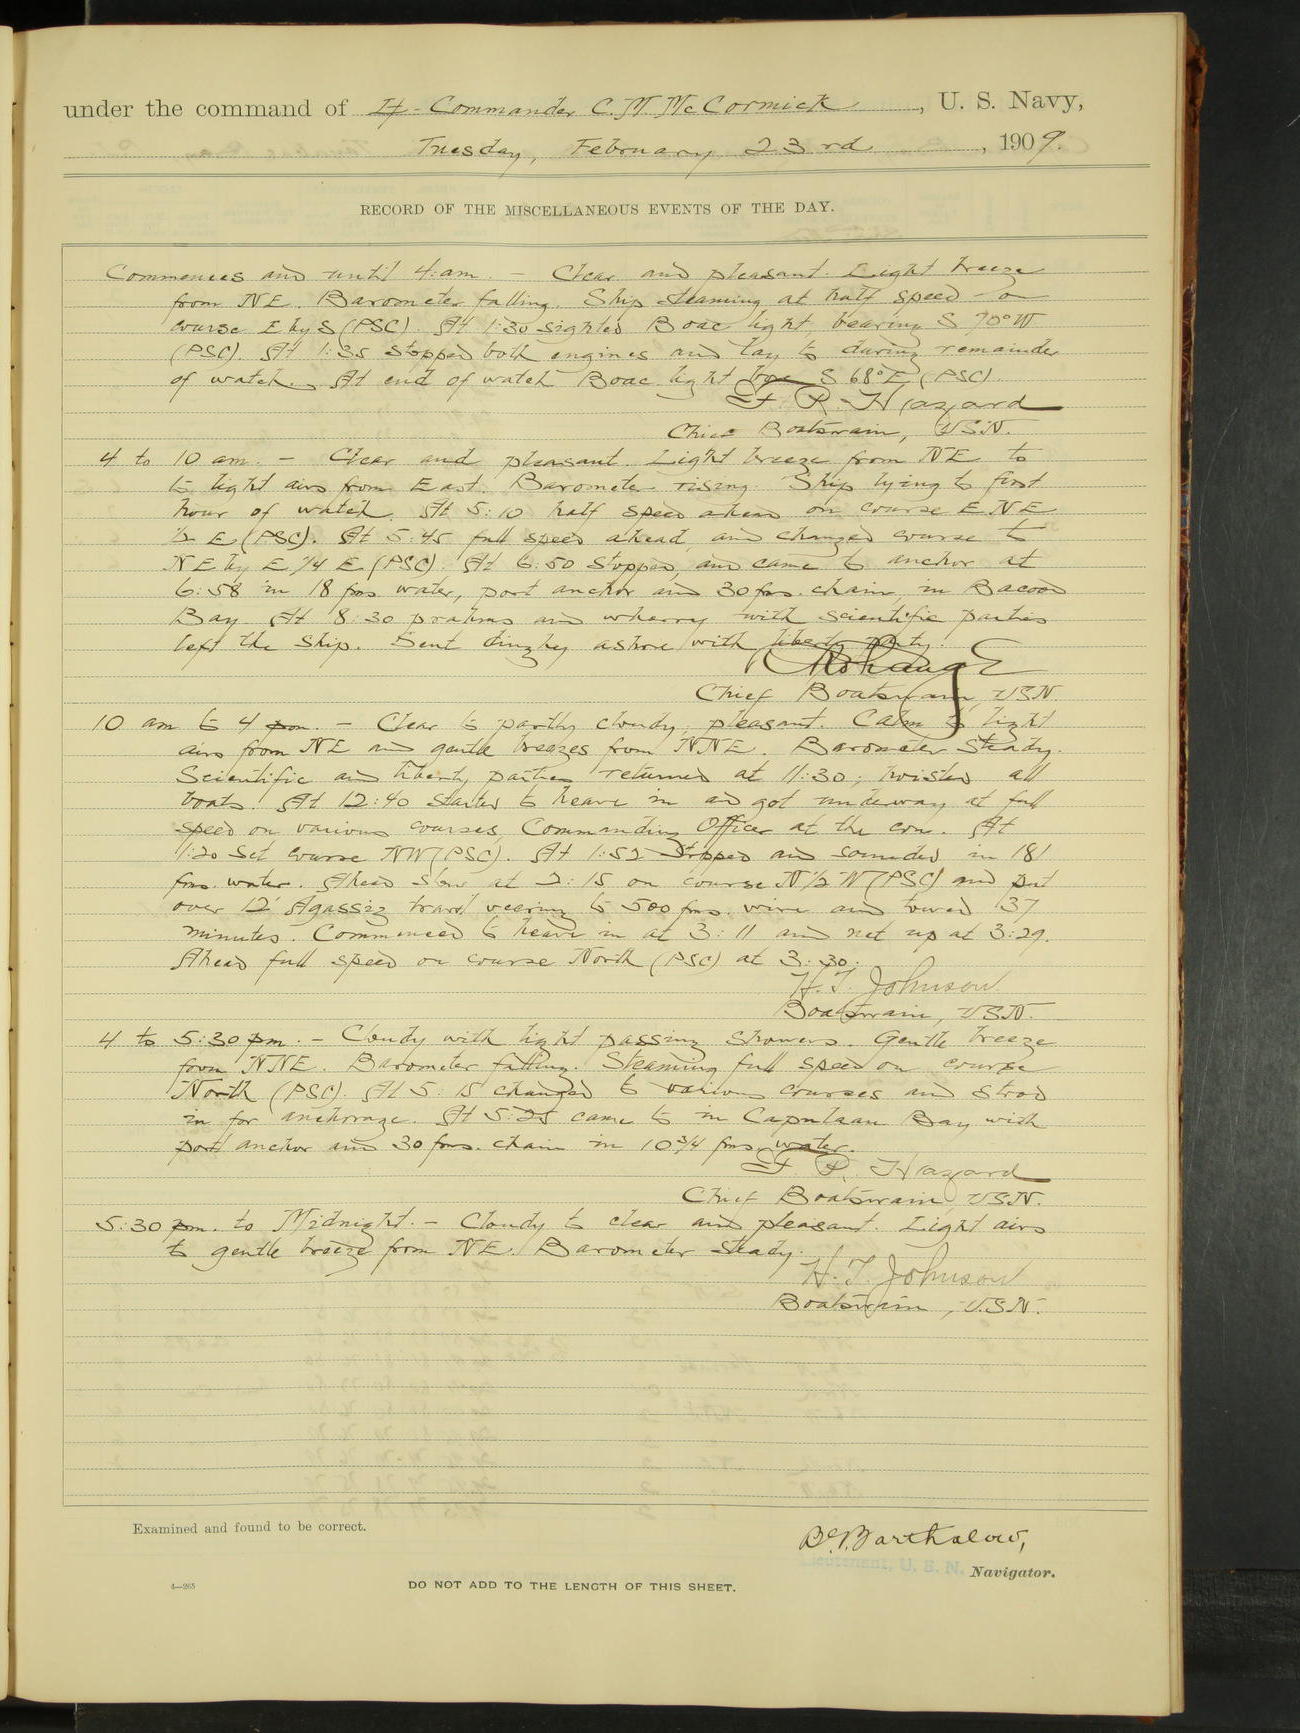 under the command of Lt-Commander C. M. McCormick, U. S. Navy,
Tuesday, February 23rd, 1909.
RECORD OF THE MISCELLANEOUS EVENTS OF THE DAY.
Commences and until 4:am. - Clear and pleasant. Light breeze
from NE. Barometer falling. Ship steaming at half speed - on
course E by S (PSC). At 1:30 sighted Boac light, bearing S 70° W
(PSC). At 1:35 stopped both engines and lay to during remainder
of watch. At end of watch Boac light bore S 68° E (PSC).
F. R. Hazard
Chief Boatswain, USN.
4 to 10 am. - Clear and pleasant. Light breeze from NE to
to light airs from East. Barometer rising. Ship lying to first
hour of watch. At 5:10 half speed ahead on course ENE
½ E (PSC). At 5:45 full speed ahead, and changed course to
NE by E ¼ E (PSC). At 6:50 stopped, and came to anchor at
6:58 in 18 fms water, port anchor and 30 fms. chain, in Bacoor
Bay. At 8:30 prahms and wherry with scientific parties
left the ship. Sent dinghy ashore with liberty party.
Chief Boatswain, USN.
10 am to 4 pm. - Clear to partly cloudy, pleasant. Calm to light
airs from NE and gentle breezes from NNE. Barometer steady.
Scientific and liberty parties returned at 11:30; hoisted all
boats. At 12:40 started to heave in and got underway at full
speed on various courses, Commanding Officer at the con. At
1:20 set course NW (PSC). At 1:52 stopped and sounded in 181
fms. water. Ahead slow at 2:15 on course N ½ W (PSC) and put
over 12' Agassiz trawl veering to 500 fms. wire and towed 37
minutes. Commenced to heave in at 3:11 and net up at 3:29.
Ahead full speed on course North (PSC) at 3:30.
H. T. Johnson
Boatswain, USN.
4 to 5:30 pm. - Cloudy with light passing showers. Gentle breeze
from NNE. Barometer falling. Steaming full speed on course
North (PSC). At 5:15 changed to various courses and stood
in for anchorage. At 5:25 came to in Capulaan Bay with
port anchor and 30 fms. chain in 10 ¾ fms water.
F. R. Hazard
Chief Boatswain, USN.
5:30 pm. to Midnight. - Cloudy to clear and pleasant. Light airs
to gentle breeze from NE. Barometer steady.
H. T. Johnson
Boatswain, U.S.N.
Examined and found to be correct.
Barthalow,
Lieutenant, U. S. N. Navigator.
4—265
DO NOT ADD TO THE LENGTH OF THIS SHEET.